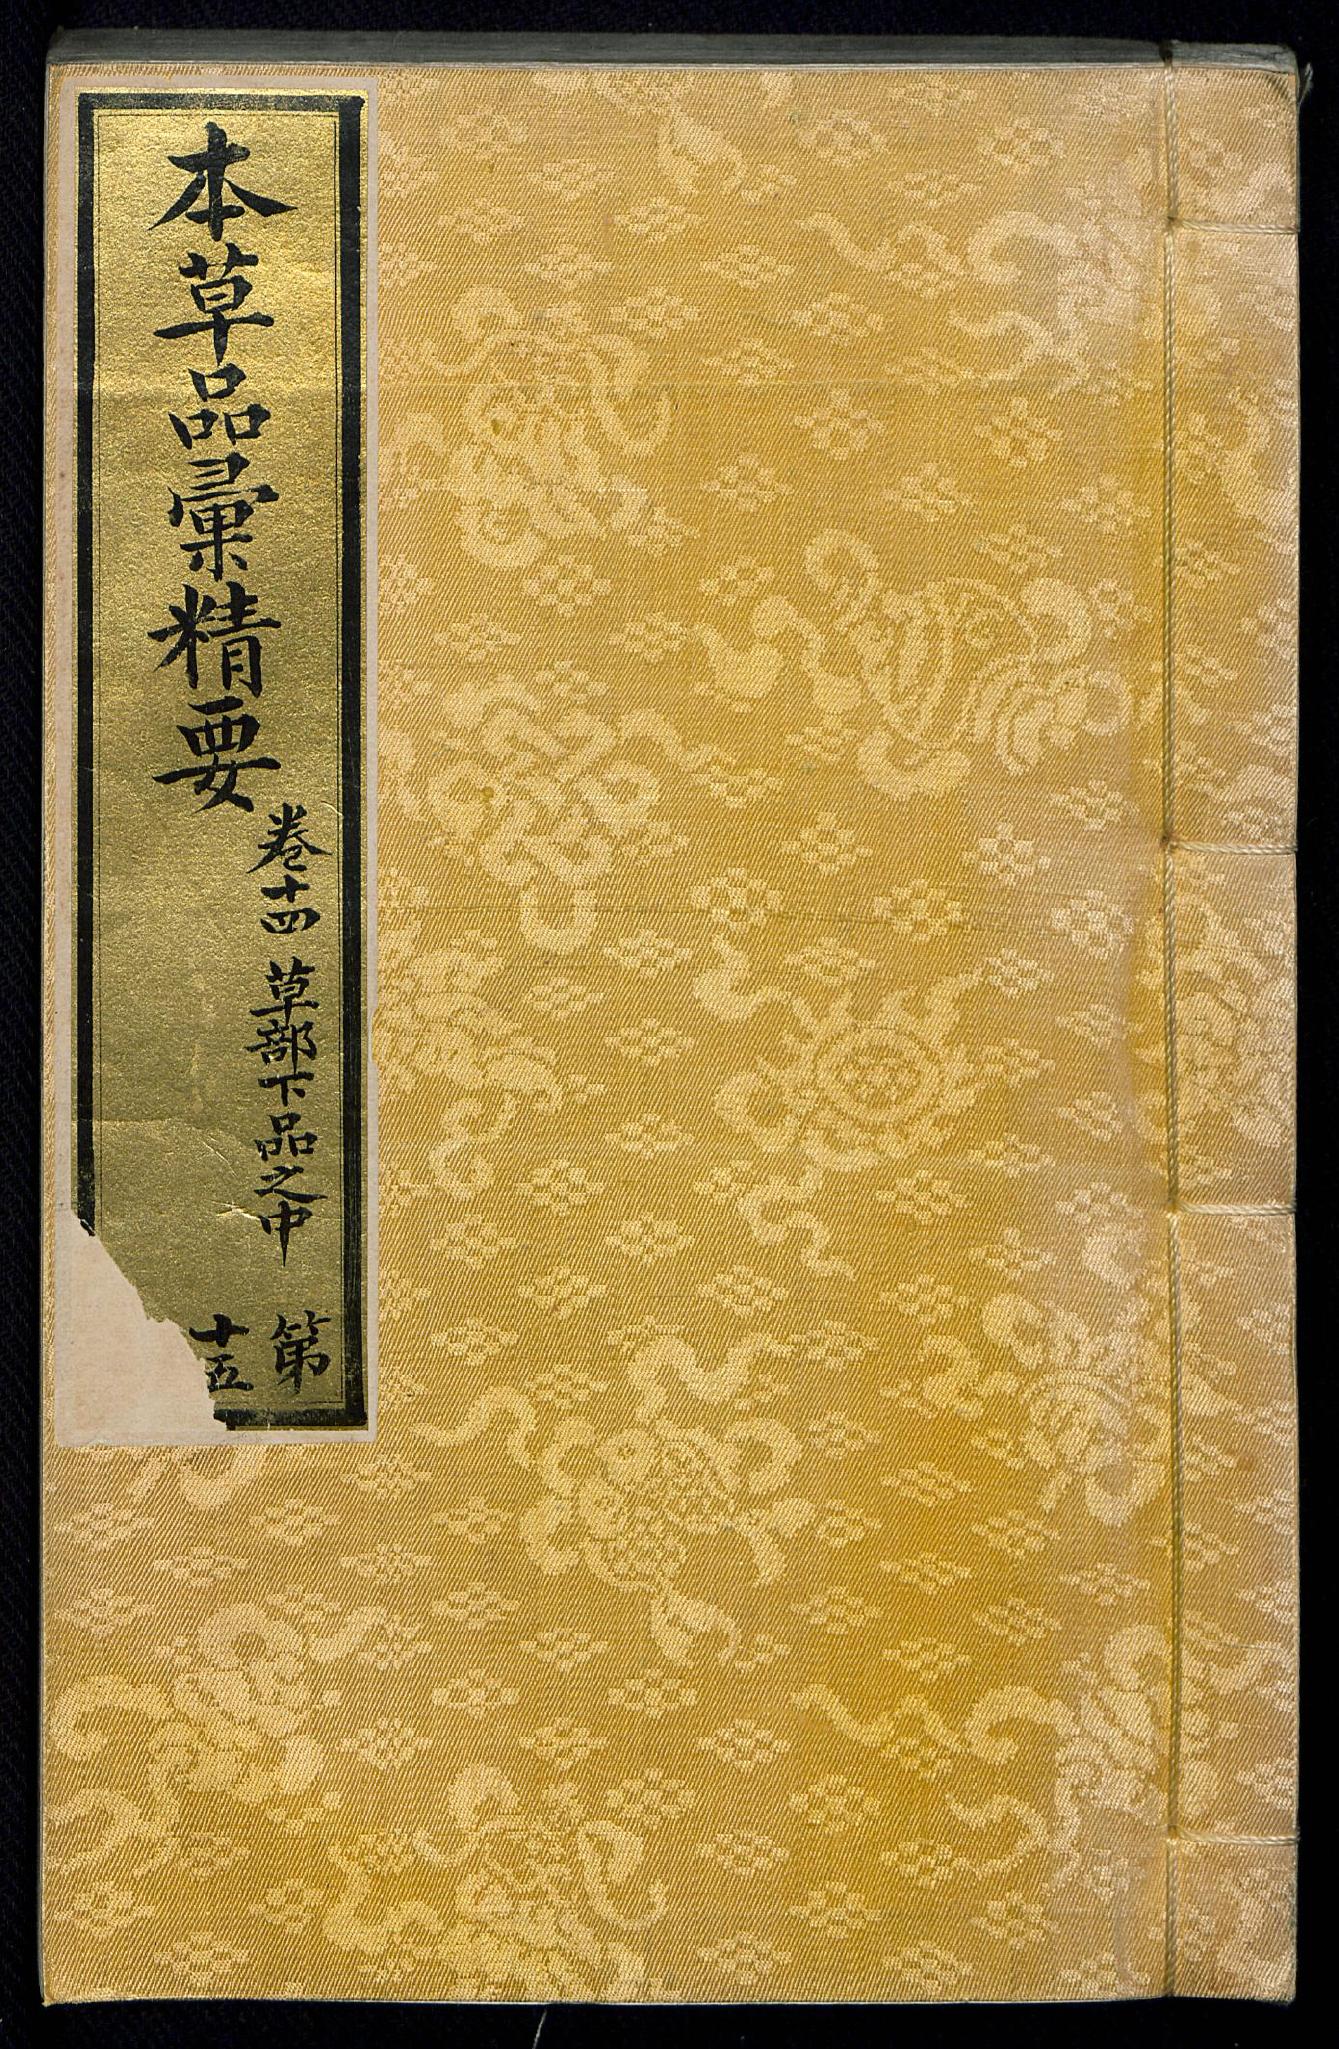 本草品彙精要
卷十四 草部下品之中
第
十五